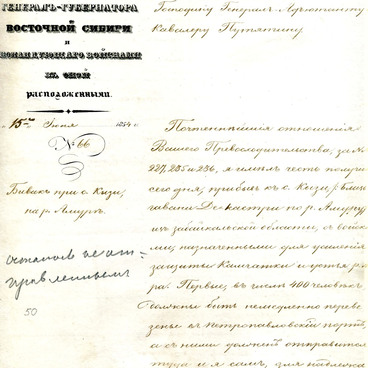 ГЕНЕРАЛЪ-ГУБЕРНАТОРА
ВОСТОЧНОЙ СИБИРИ
И
КОМАНДУЮЩАГО ВОЙСКАМИ
ВЪ ОНОЙ
РАСПОЛОЖЕННЫМИ.
15го Іюня 1854 г.
№ 66
Бивакъ при с. Кизи,
на р. Амуръ.
остался не от=
правленнымъ
50
Господину Генералъ-Адъютанту
Кавалеру Путятину
Почтеннѣйшія отношенія
Вашего Превосходительства, за №
227, 235 и 236, я имѣлъ честь получи
сего дня, прибывъ къ с. Кизи, близ
гавани Де-Кастри по р. Амуру
изъ Забайкальской области, съ войс
ми, назначенными для усиленія
защиты Камчатки и устья
ра. Первые, въ числѣ 400 человѣкъ
должны быть немедленно переве
зены въ Петропавловскій портъ,
а съ ними долженъ отправиться
туда и я самъ, для